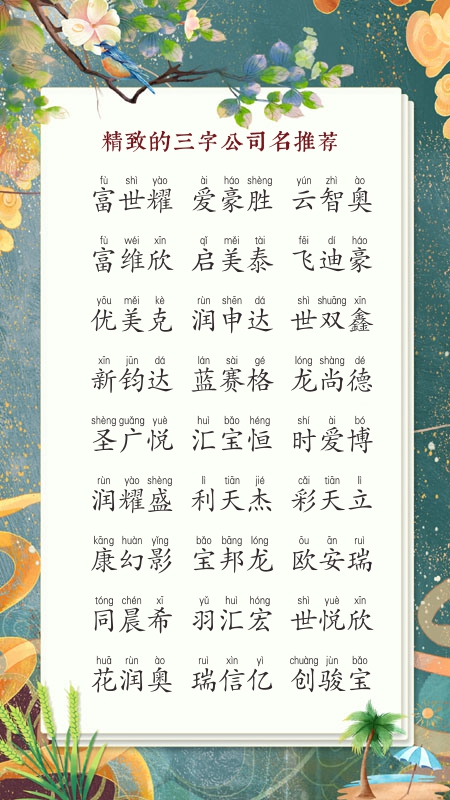 精致的三字公司名推荐
fù shì yào ài háo shèng yún zhì ào
富世耀 爱豪胜 云智奥
fù wéi xīn qǐ měi tài fēi dí háo
富维欣 启美泰 飞迪豪
yōu měi kè rùn shēn dá shì shuāng xīn
优美克 润申达 世双鑫
xīn jūn dá lán sài gé lóng shàng dé
新钧达 蓝赛格 龙尚德
shèng guǎng yuè huì bǎo héng shí ài bó
圣广悦 汇宝恒 时爱博
rùn yào shèng lì tiān jié cǎi tiān lì
润耀盛 利天杰 彩天立
kāng huàn yǐng bǎo bāng lóng ōu ān ruì
康幻影 宝邦龙 欧安瑞
tóng chén xī yǔ huì hóng shì yuè xīn
同晨希 羽汇宏 世悦欣
huā rùn ào ruì xìn yì chuàng jùn bǎo
花润奥 瑞信亿 创骏宝